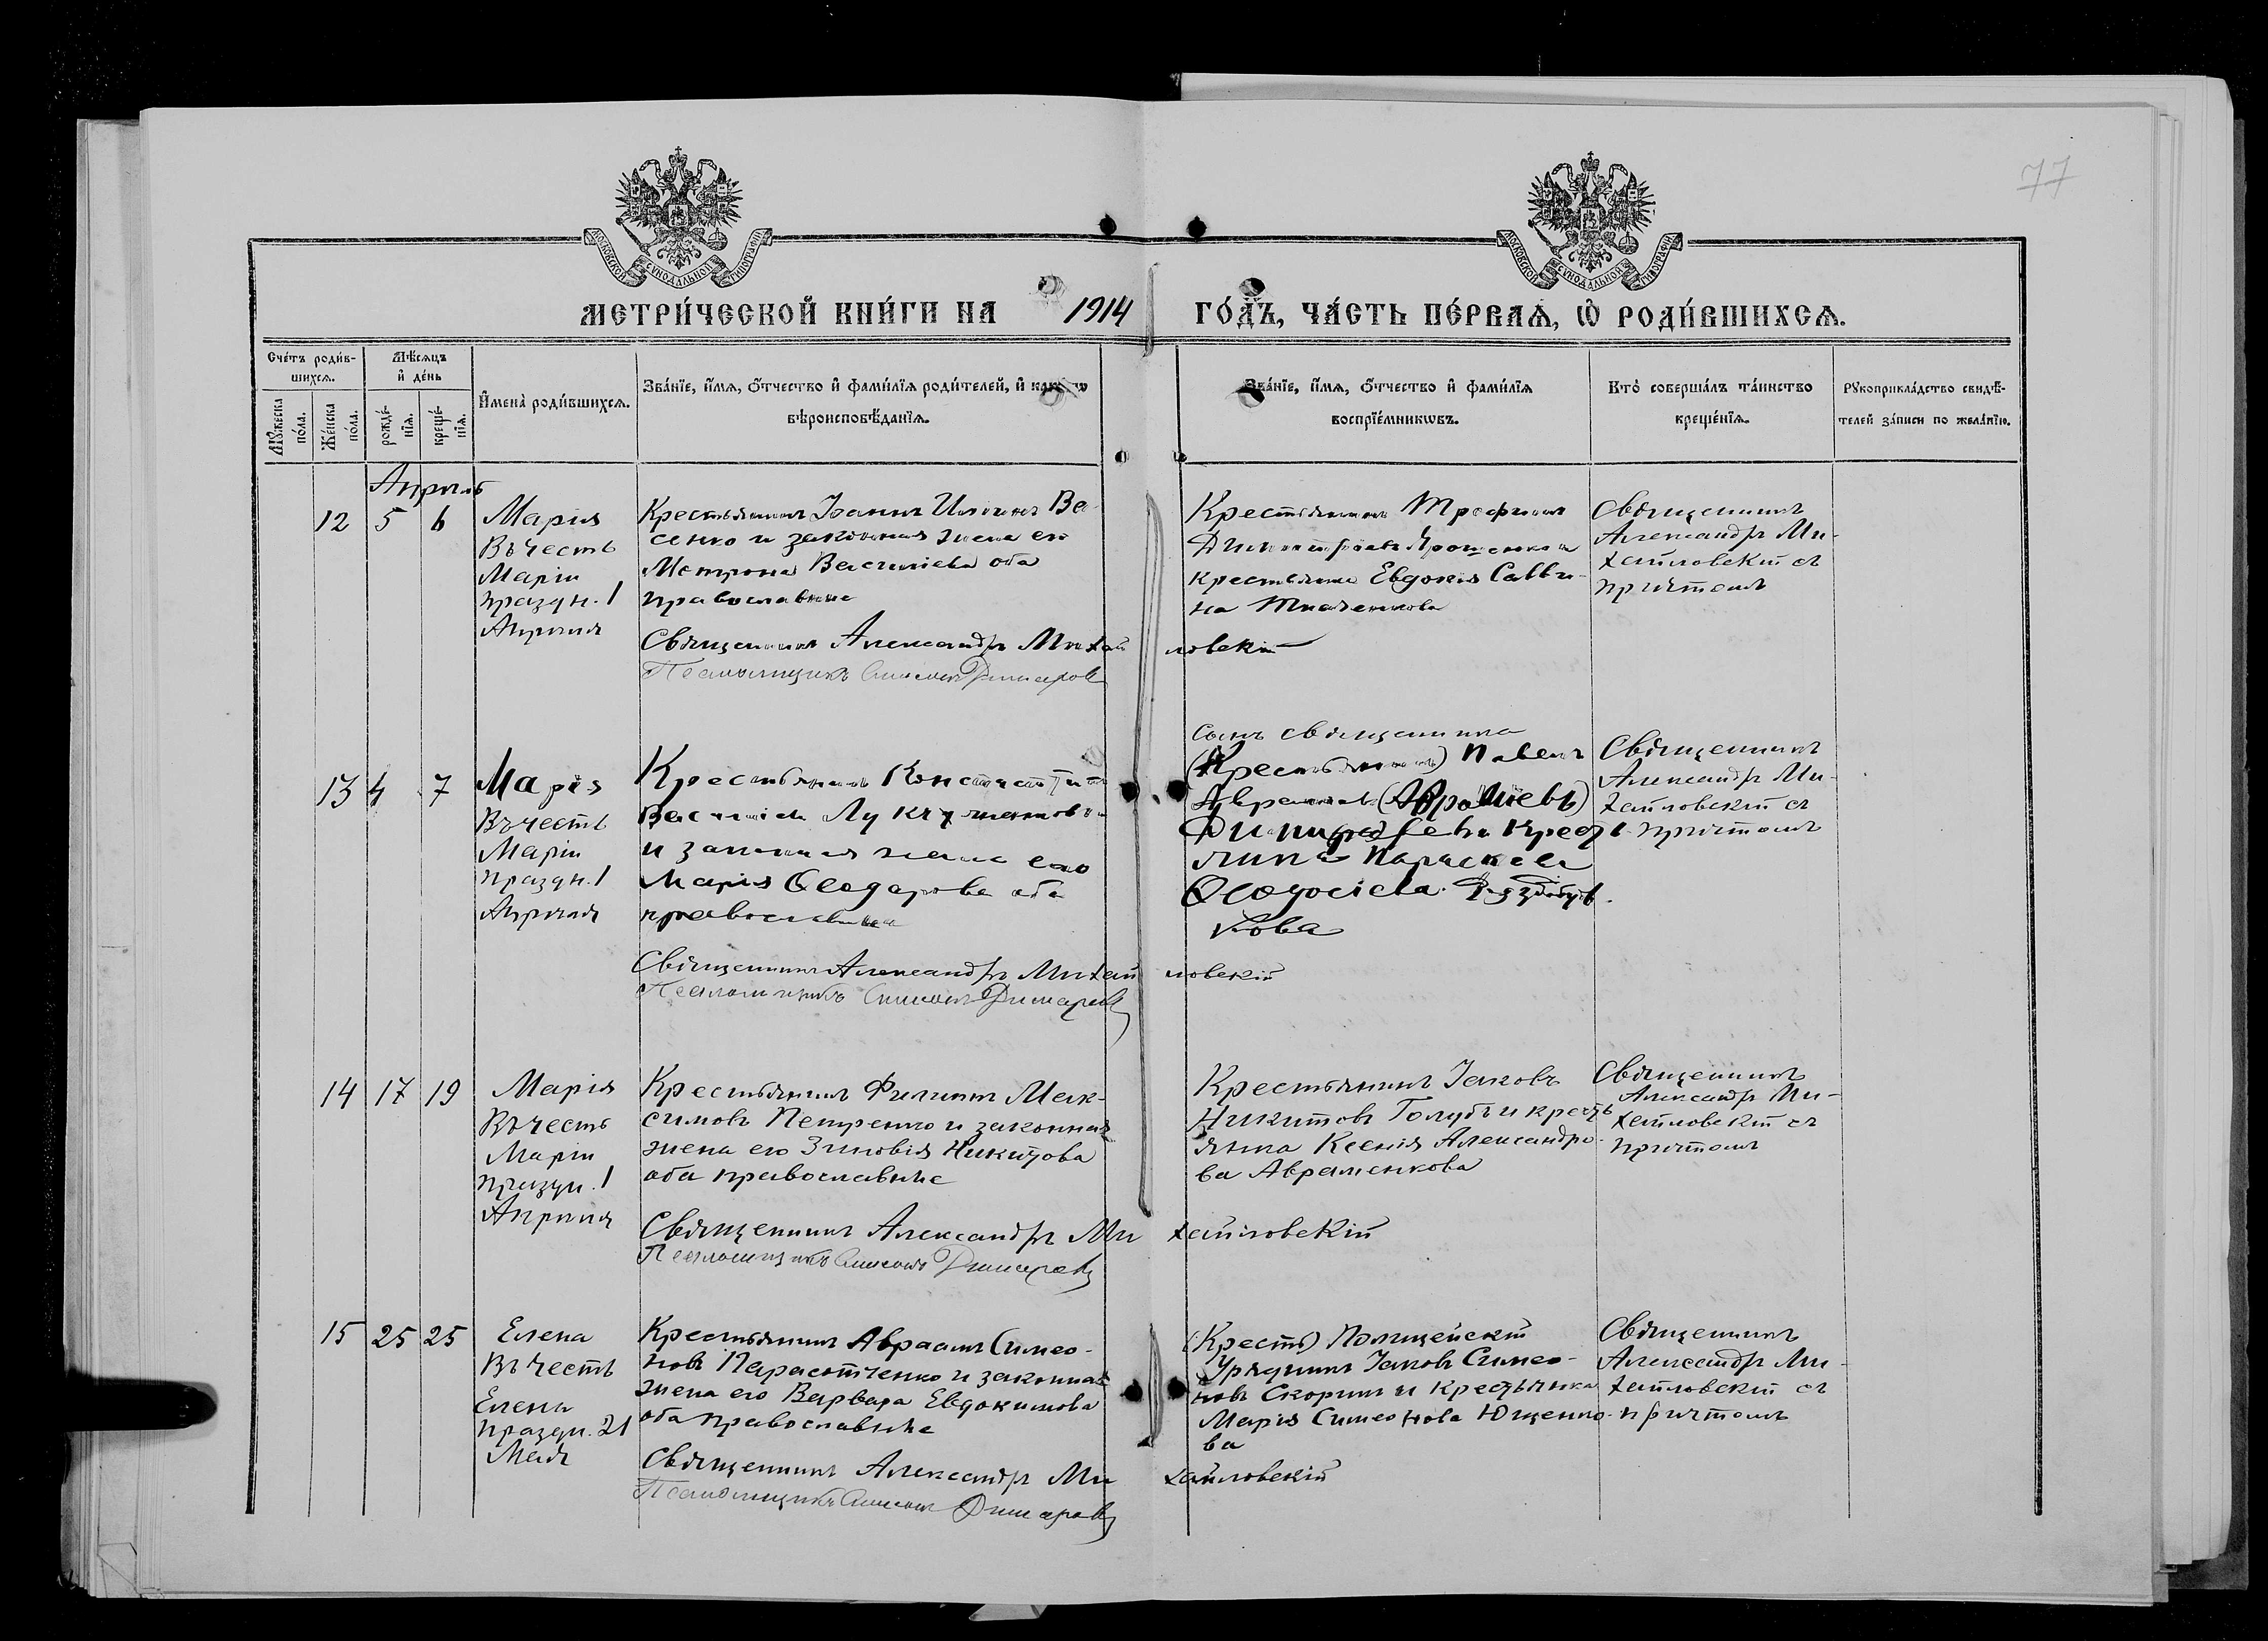 77
МОСКОВСКОЙ СѴНОДАЛЬНОЙ ТИПОГРАФІИ
МОСКОВСКОЙ СѴНОДАЛЬНОЙ ТИПОГРАФІИ
МЕТРИ́ЧЕСКОЙ КНИ́ГИ НА 1914 ГО́ДЪ, ЧА́СТЬ ПЕ́РВАѦ, Ѡ РОДИ́ВШИХСѦ.
Сче́тъ роди́в-
шихсѧ.
Мѣ́сѧцъ
и де́нь
Мꙋ́жеска
по́ла.
Же́нска
по́ла.
рожде́-
нїѧ.
креще́-
нїѧ.
Имена̀ роди́вшихсѧ.
Зва́нїе, и́мѧ, о́тчество и фами́лїѧ роди́телей, и како́гѡ
вѣроисповѣ́данїѧ.
Зва́нїе, и́мѧ, о́тчество и фами́лїѧ
воспрїе́мникѡвъ.
Кто̀ соверша́лъ та́инство
креще́нїѧ.
Рꙋкоприкла́дство свидѣ́-
телей за́писи по жела́нїю.
Апрѣль
12 5 6
Марія
Въ честь
Маріи
праздн. 1
Апрѣля
Крестьянинъ Іоаннъ Ва-
сенко и законная жена его
Матрона Василіева оба
православные
Священникъ Александръ Михайловскій
Псаломщикъ
Крестьянинъ Трофимъ
Димитріевъ Ярошенко и
крестьянка Евдокія Савви-
на Ткаченкова
Священникъ
Александръ Ми-
хайловскій съ
причтомъ
13 4 7
Марія
Въ честь
Маріи
праздн. 1
Апрѣля
Крестьянинъ Константинъ
Василіевъ
и законная жена его
Марія Ѳеодорова оба
православные
Священникъ Александръ Михайловскій
Псаломщикъ
сынъ священника
(Крестьянинъ) Павелъ
Параскева
Ѳеодосіева
кова
Священникъ
Александръ Ми-
хайловскій съ
причтомъ
14 17 19
Марія
Въ честь
Маріи
праздн. 1
Апрѣля
Крестьянинъ Филиппъ Мак-
симовъ Петренко и законная
жена его Зиновія Никитова
оба православные
Священникъ Александръ Михайловскій
Псаломщикъ
Крестьянинъ Іаковъ
Никитовъ Голубъ и кресть
янка Ксенія Александро-
ва Авраменкова
Священникъ
Александръ Ми-
хайловскій съ
причтомъ
15 25 25
Елена
Въ честь
Елены
праздн. 21
Мая
Крестьянинъ Авраамъ Симео-
новъ Парасотченко и законная
жена его Варвара Евдокимова
оба православные
Священникъ Александръ Михайловскій
Псаломщикъ
(Кресть) Полицейскій
Урядникъ Іаковъ Симео-
новъ Скоринъ и крестьянка
Марія Симеонова Ющенко-
ва
Священникъ
Александръ Ми-
хайловскій съ
причтомъ